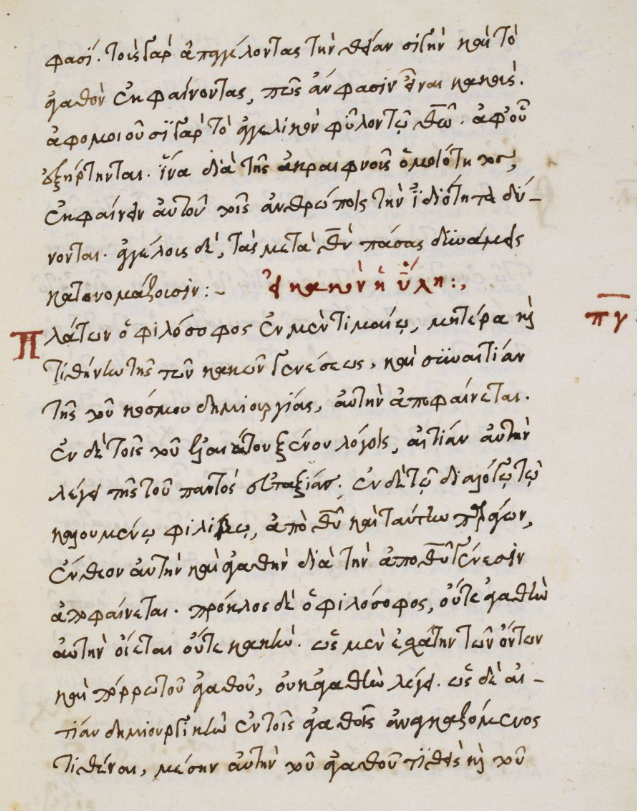 φασί. τοῖς γὰρ ἀπαγγέλοντας τὴν θείαν σιγὴν καὶ τὸ
ἀγαθὸν ἐκφαίνοντας, πῶς ἄν φασὶν εἶναι κακοὺς.
ἀφομοιοῦσι γὰρ τὸ ἀγγελικὸν φῦλον τῷ θεῶ. ἀφ' οὗ
ἐξήρτηνται. ἵνα διὰ τῆς ἀκραιφνοῦς ὁμοιότητος,
ἐκφαίνειν αὐτοῦ τοῖς ἀνθρώποις τὴν ἰδιότητα δύ-
νονται. ἀγγέλοις δὲ, τὰς μετὰ θν πάσας δυνάμεις
κατονομάζουσιν:
εἰ κακὸν ἡ ὕλη:
πγ
Πλάτων ὁ φιλόσοφος ἐν μὲν τιμαίῳ, μητέρα καὶ
τιθήνην τῆς τῶν κακῶν γενέσεως, καὶ συναιτίαν
τῆς τοῦ κόσμου δημιουργίας, αὐτὴν ἀποφαίνεται.
ἐν δὲ τοῖς τοῦ ξένου λόγοις, αἰτίαν αὐτὴν
λέγει τῆς τοῦ παντὸς ἀταξίας. ἐν δὲ τῷ διαλόγῳ τῷ
καλουμένῳ φιλίβῳ, ἀπὸ θῦ καὶ ταύτην παράγων,
ἔνθεον αὐτὴν καὶ ἀγαθὴν διὰ τὴν ἀπὸ θῦ γένεσιν
ἀποφαίνεται. πρόκλος δὲ ὁ φιλόσοφος, οὔτε ἀγαθὴν
αὐτὴν οἴεται οὔτε κακήν. ὡς μὲν ἐσχάτην τῶν ὄντων
καὶ πόρρω τοῦ ἀγαθοῦ, οὐκ ἀγαθὴν λέγει. ὡς δὲ αἰ-
τίαν δημιουργικὴν ἐν τοῖς ἀγαθοῖς ἀναγκαζόμενος
τιθέναι, μέσην αὐτὴν τοῦ ἀγαθοῦ τίθησι καὶ τοῦ